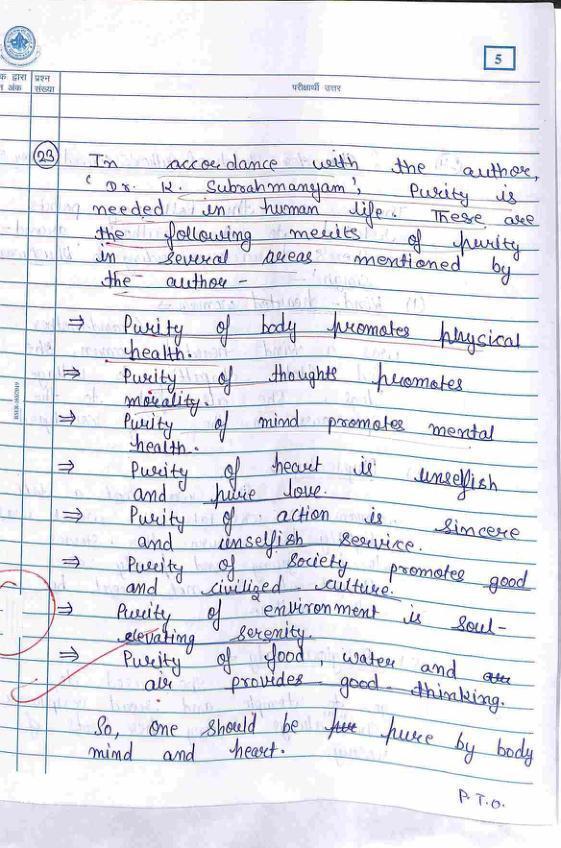 5
क द्वारा प्रश्न
अंक संख्या
परीक्षार्थी उत्तर
23 In accordance with the author,
'Dr. K. Subrahmanyam', Purity is
needed in human life. These are
the following merits of purity
in several areas mentioned by
the author -
⇒ Purity of body promotes physical
health.
⇒ Purity of thoughts promotes
morality.
⇒ Purity of mind promotes mental
health.
⇒ Purity of heart is unselfish
and pure love.
⇒ Purity of action is sincere
and unselfish service.
⇒ Purity of society promotes good
and civilized culture.
⇒ Purity of environment is soul-
elevating serenity.
⇒ Purity of food, water and
air provides good thinking.
So, one should be pure by body
mind and heart.
P.T.O.